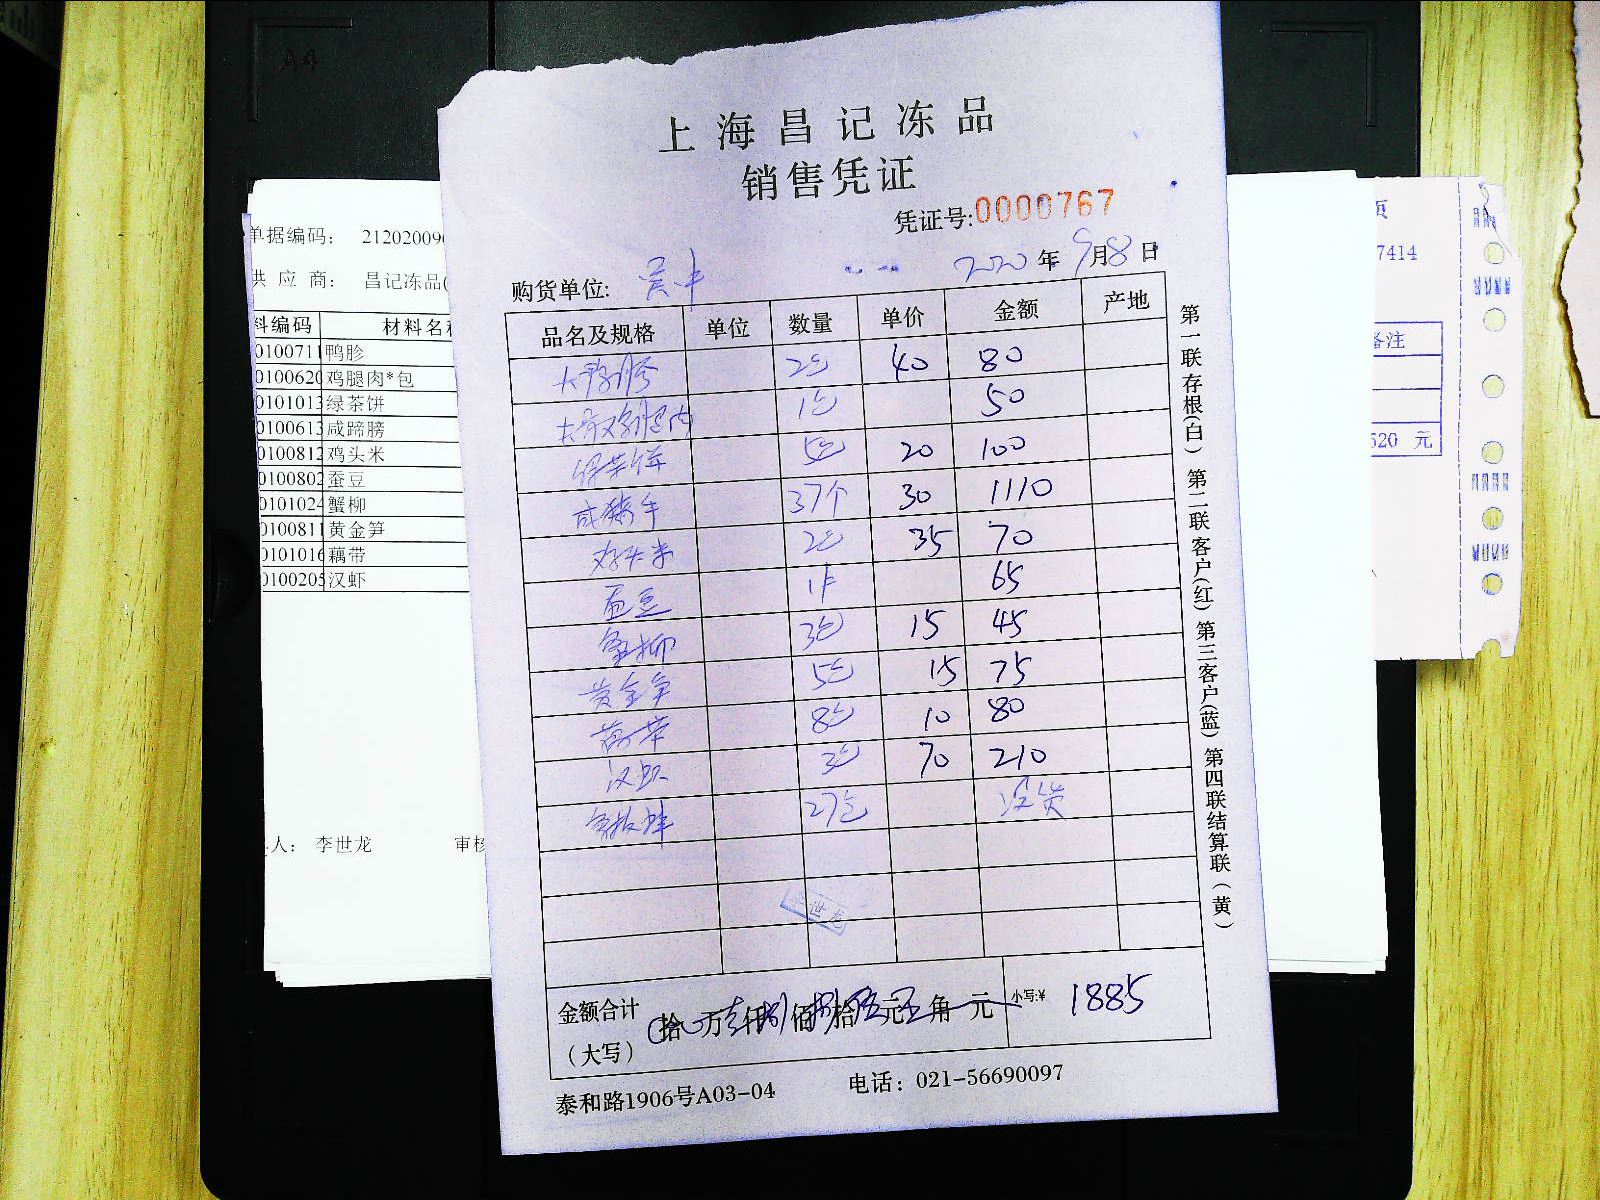 上海昌记冻品
销售凭证
凭证号:0000767
购货单位: 2020年9月8日
品名及规格 单位 数量 单价 金额 产地
大鸭胗 2包 40 80
1包 50
绿茶饼 5包 20 100
咸猪手 37个 30 1110
鸡头米 2包 35 70
蚕豆 1件 65
蟹柳 3包 15 45
黄金笋 5包 15 75
藕带 8包 10 80
汉虾 3包 70 210
27包 没货
李世龙
金额合计
(大写)
拾 万 仟 佰 拾 元 角 元 小写:¥ 1885
泰和路1906号A03-04 电话：021-56690097
第一联存根(白) 第二联客户(红) 第三客户(蓝) 第四联结算联(黄)
单据编码： 21202009
供 应 商： 昌记冻品(
料编码 材料名称
0100711 鸭胗
0100620 鸡腿肉*包
0101013 绿茶饼
0100613 咸蹄膀
0100812 鸡头米
0100802 蚕豆
0101024 蟹柳
0100811 黄金笋
0101016 藕带
0100205 汉虾
人： 李世龙 审核
页
7414
备注
620 元
A4